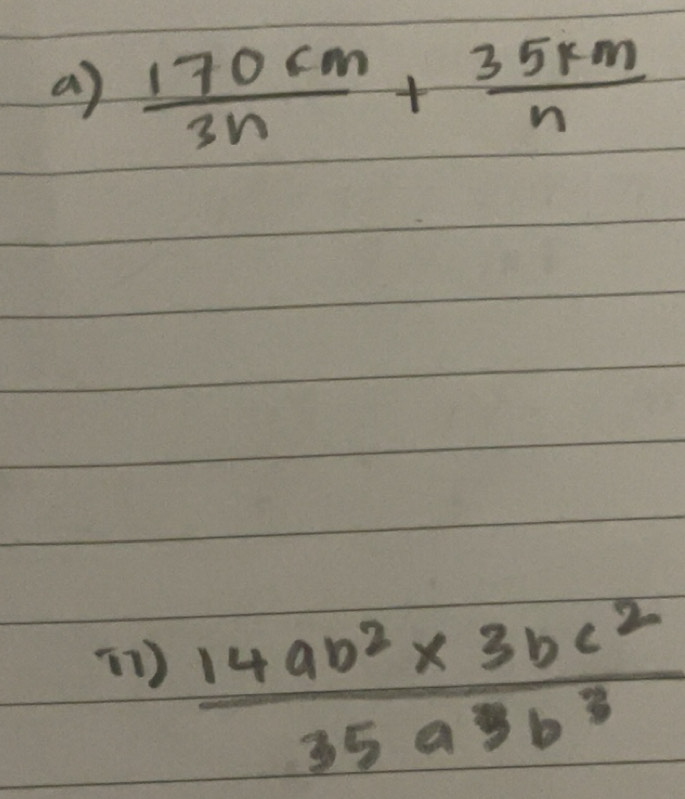 a) 170cm/3n + 35km/n
ii) 14ab² × 3bc²/35a³b³